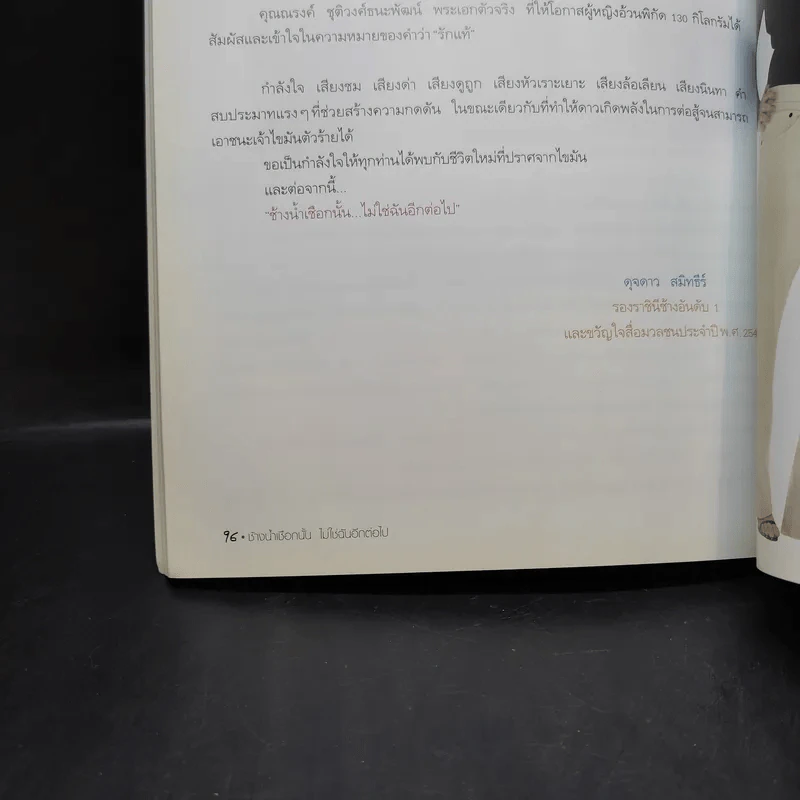 คุณณรงค์ ชุติวงศ์ธนะพัฒน์ พระเอกตัวจริง ที่ให้โอกาสผู้หญิงอ้วนพิกัด 130 กิโลกรัมได้
สัมผัสและเข้าใจในความหมายของคำว่า "รักแท้"
กำลังใจ เสียงชม เสียงด่า เสียงดูถูก เสียงหัวเราะเยาะ เสียงล้อเลียน เสียงนินทา คำ
สบประมาทแรง ๆ ที่ช่วยสร้างความกดดัน ในขณะเดียวกับที่ทำให้ดาวเกิดพลังในการต่อสู้จนสามารถ
เอาชนะเจ้าไขมันตัวร้ายได้
ขอเป็นกำลังใจให้ทุกท่านได้พบกับชีวิตใหม่ที่ปราศจากไขมัน
และต่อจากนี้...
"ช้างน้ำเชือกนั้น...ไม่ใช่ฉันอีกต่อไป"
ดุจดาว สมิทธีร์
รองราชินีช้างอันดับ 1
และขวัญใจสื่อมวลชนประจำปี พ.ศ. 254
96 • ช้างน้ำเชือกนั้น ไม่ใช่ฉันอีกต่อไป